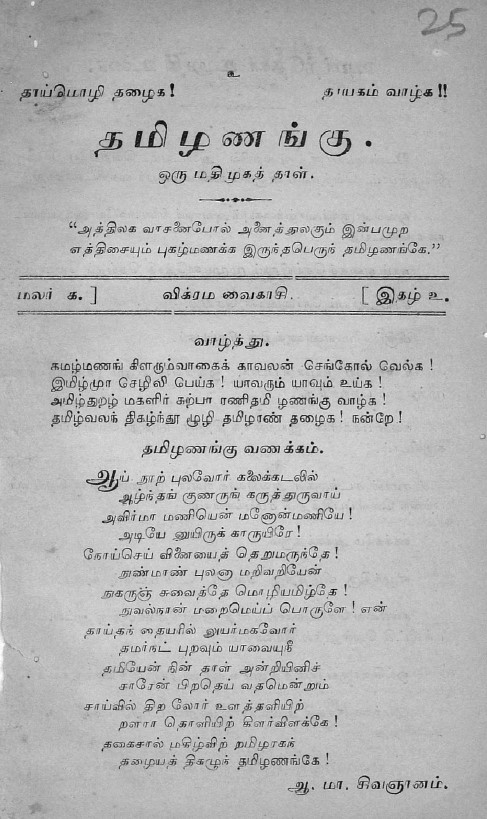 25
உ
தாய்மொழி தழைக! தாயகம் வாழ்க!!
தமிழணங்கு.
ஒரு மதிமுகத் தாள்.
“அத்திலக வாசனைபோல் அனைத்துலகும் இன்பமுற
எத்திசையும் புகழ்மணக்க இருந்தபெருந் தமிழணங்கே.”
மலர் க. ] விக்ரம வைகாசி. [ இதழ் உ.
வாழ்த்து.
கமழ்மணங் கிளரும்வாகைக் காவலன் செங்கோல் வேல்க!
இமிழ்மு செழிலி பெய்க! யாவரும் யாவும் உய்க!
அமிழ்துறழ் மகளிர் கற்பா ரணிதமி ழணங்கு வாழ்க!
தமிழ்வலந் திகழ்ந்தூ ழூழி தமிழாண் தழைக! நன்றே!
தமிழணங்கு வணக்கம்.
ஆய் நூற் புலவோர் கலைக்கடலில்
ஆழ்ந்தங் குணருங் கருத்துருவாய்
அவிர்மா மணியென் மனோன்மணியே!
அடியே னுயிருக் காருயிரே!
நோய்செய் வினையைத் தெறுமருந்தே!
நுண்மாண் புலனா மறிவறியேன்
நுகருஞ் சுவைத்தே மொழியமிழ்தே!
நுவல்நான் மறைமெய்ப் பொருளே! என்
தாய்தந் தையரில் னுயர்மகவோர்
தமர்நட் புறவும் யாவையுநீ
தமியேன் நின் தாள் அன்றியினிச்
சாரேன் பிறதெய் வதமென்றும்
சாய்வில் திற லோர் உளத்தளியிற்
றளரா தொளியிற் கிளர்விளக்கே!
தகைசால் மகிழ்விற் றமிழரகந்
தழையத் திகழுந் தமிழணங்கே!
ஆ. மா. சிவஞானம்.